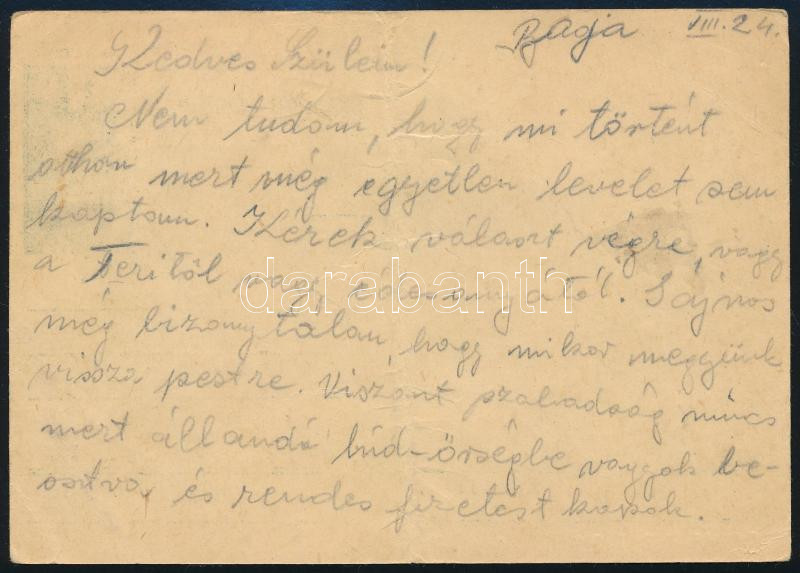 Baja VIII. 24.
Kedves Szüleim!
Nem tudom, hogy mi történt
othon mert még egyetlen levelet sem
kaptam. Kérek választ végre, vagy
a Feritöl vagy édesanyától. Sajnos
még bizonytalan, hogy mikor meggyünk
vissza pestre. Viszont szabadság nincs
mert állandó húd-örségbe vagyok be-
osztva, és rendes fizetést kapok.
darabanth